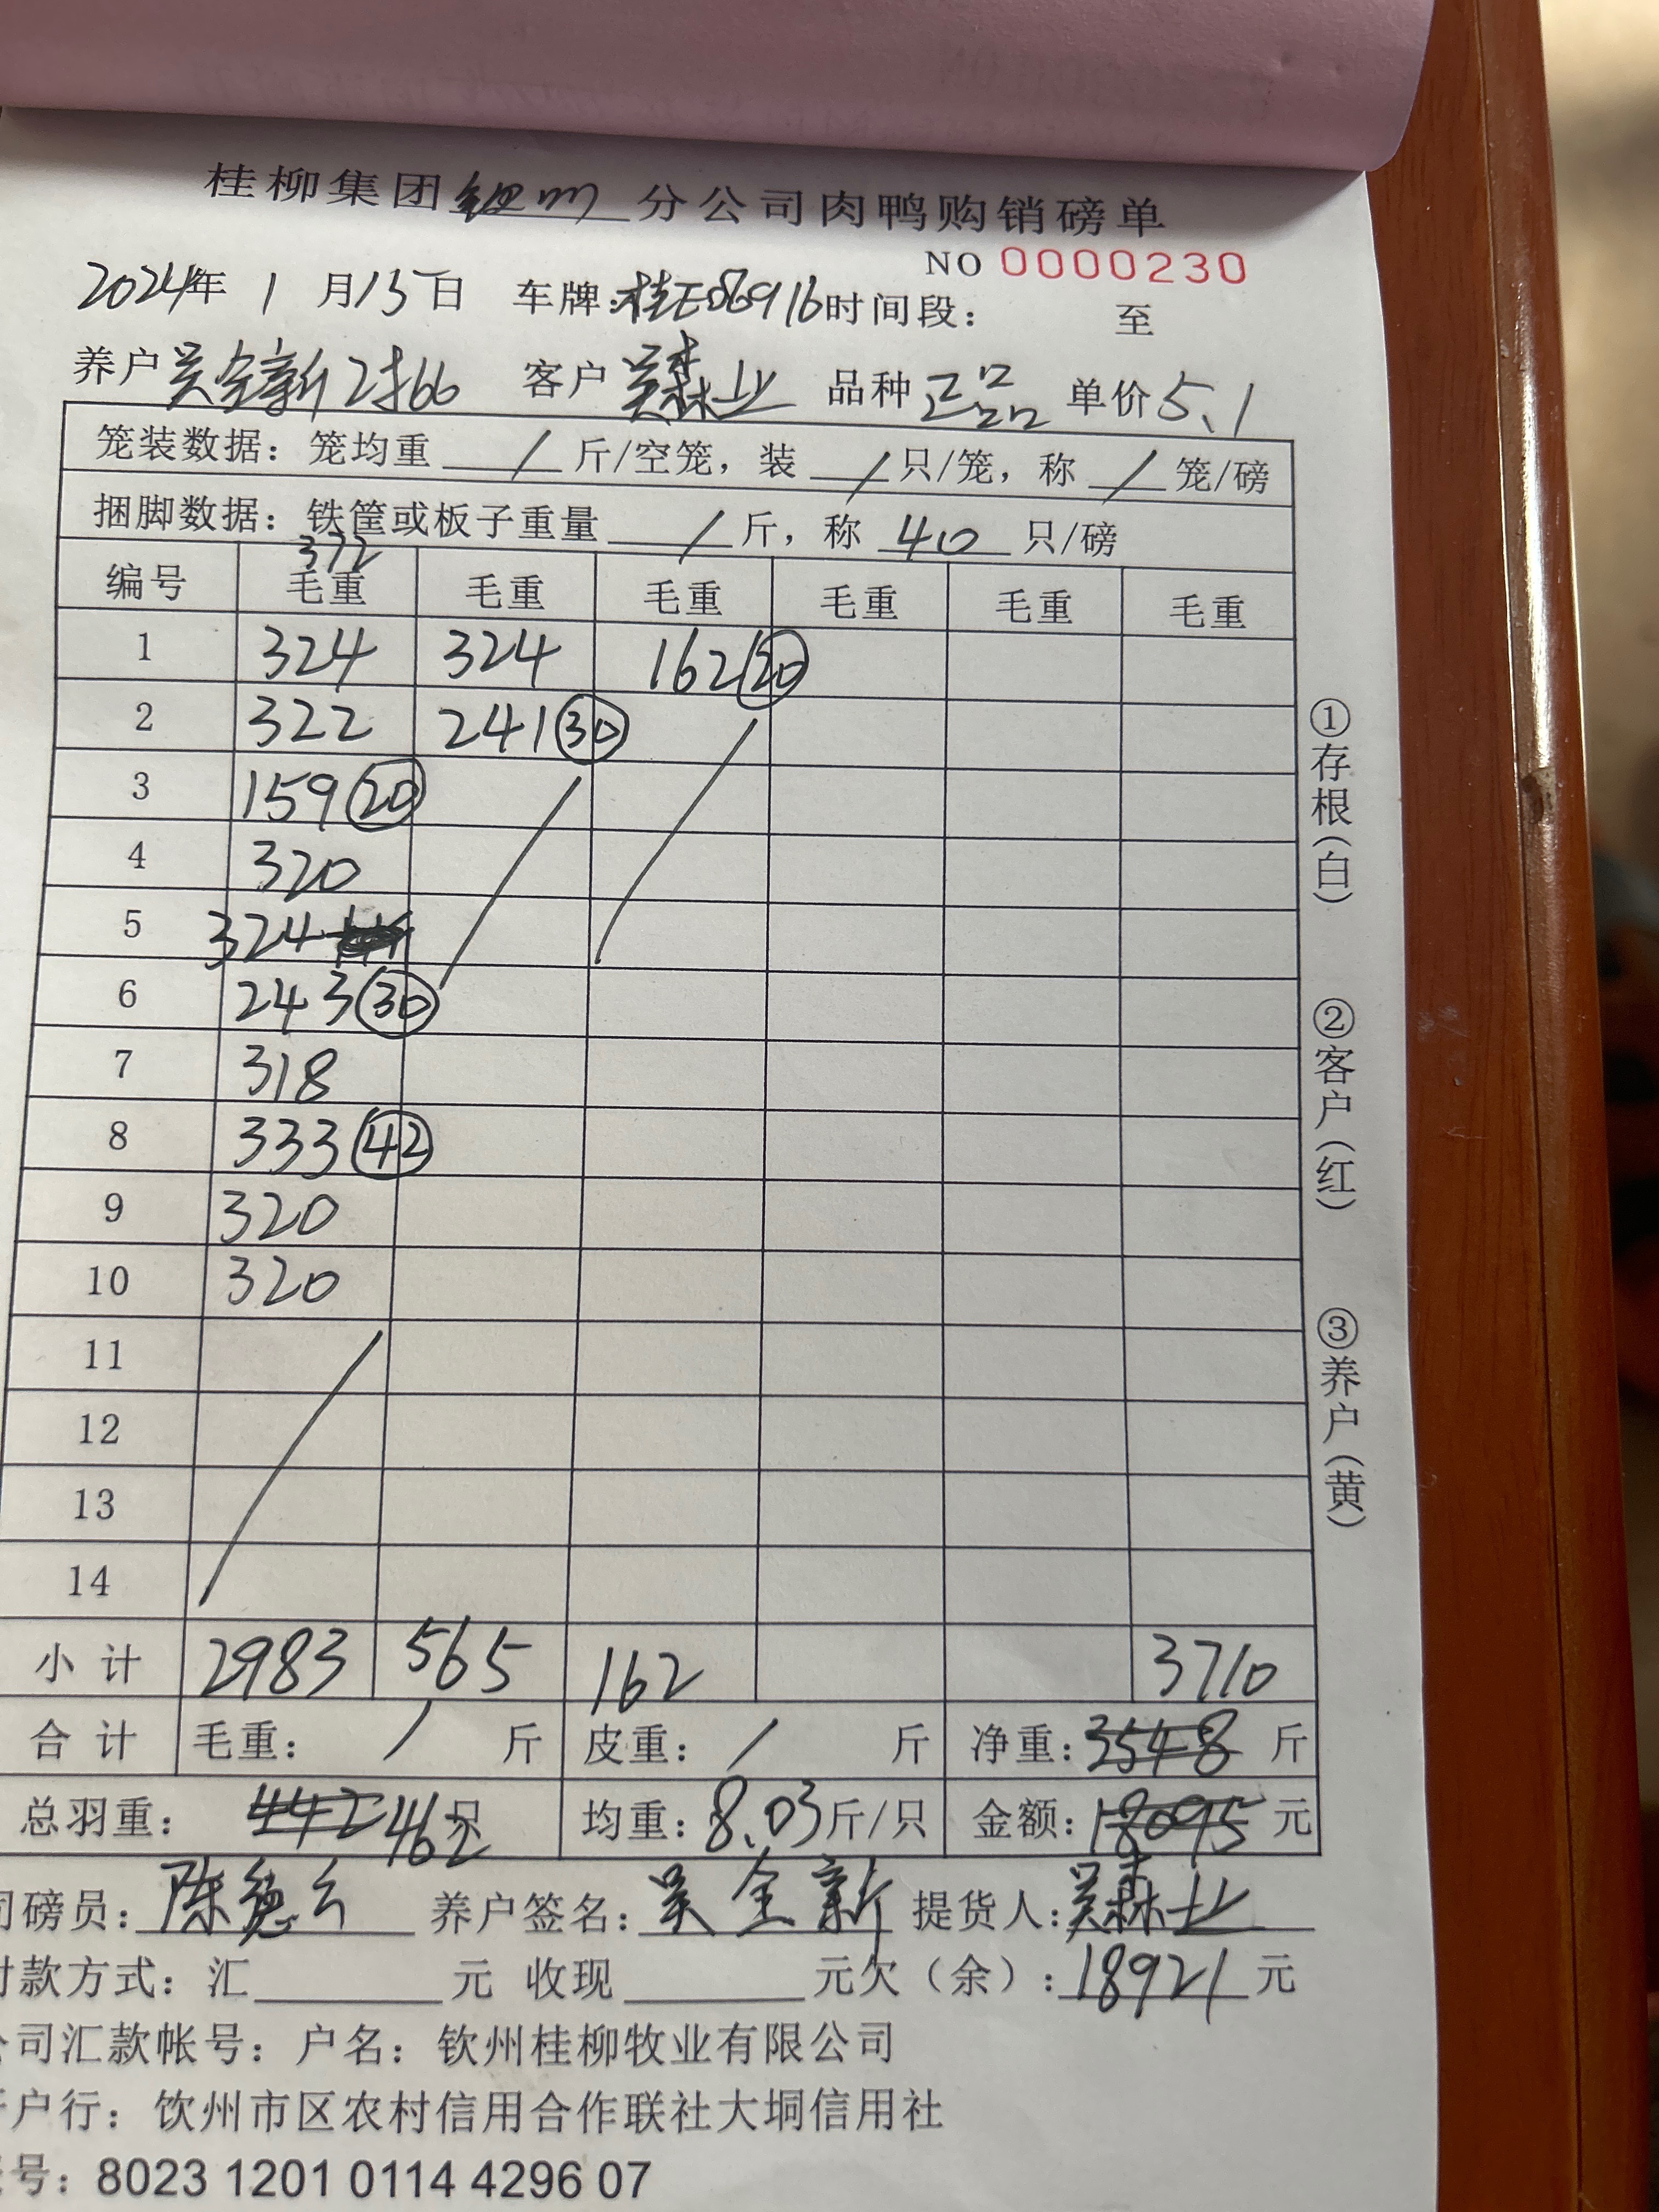 桂柳集团钦州分公司肉鸭购销磅单
NO 0000230
2024年 1 月15日 车牌:桂E08916时间段: 至
养户 吴全新 2批66 客户 吴森业 品种 正品 单价 5.1
笼装数据: 笼均重 / 斤/空笼, 装 / 只/笼, 称 / 笼/磅
捆脚数据: 铁筐或板子重量 / 斤, 称 40 只/磅
372
编号 毛重 毛重 毛重 毛重 毛重 毛重
1 324 324 162 20
2 322 241 30
3 159 20
4 320
5 324
6 243 30
7 318
8 333 42
9 320
10 320
11
12
13
14
小计 2983 565 162 3710
合计 毛重: / 斤 皮重: / 斤 净重: 3548 斤
总羽重: 442 462 只 均重: 8.03 斤/只 金额: 18095 元
司磅员: 陈德云 养户签名: 吴全新 提货人: 吴森业
付款方式: 汇 元 收现 元欠(余): 18921 元
公司汇款帐号: 户名: 钦州桂柳牧业有限公司
开户行: 钦州市区农村信用合作联社大垌信用社
号: 8023 1201 0114 4296 07
①存根(白)
②客户(红)
③养户(黄)